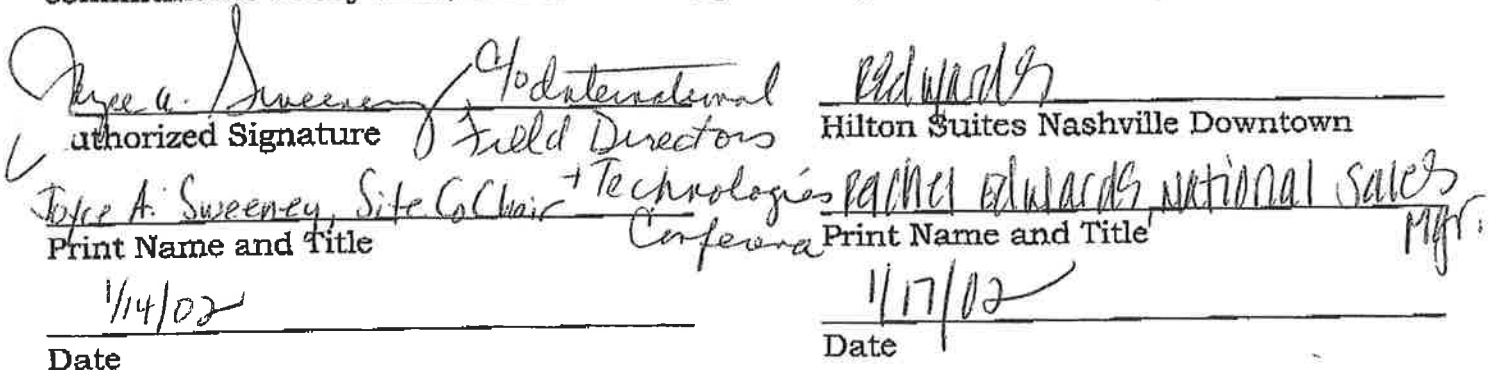 Joyce A. Sweeney c/o International
Field Directors
+ Technologies
Conference
uthorized Signature
Joyce A. Sweeney, Site CoChair
Print Name and Title
1/14/02
Date
redwards
Hilton Suites Nashville Downtown
rachel Edwards National Sales
Mgr.
Print Name and Title
1/17/02
Date